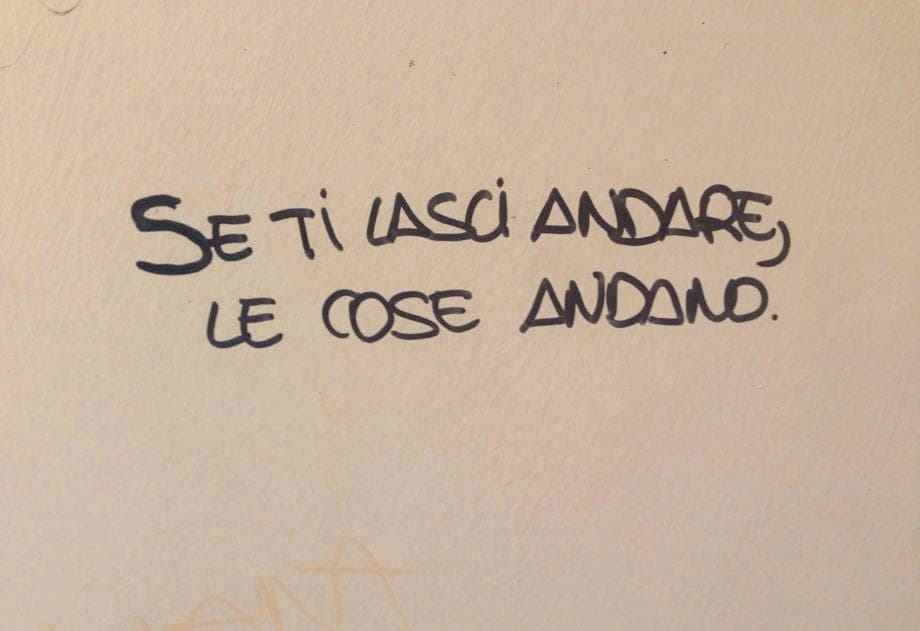 SE TI LASCI ANDARE,
LE COSE ANDANO.